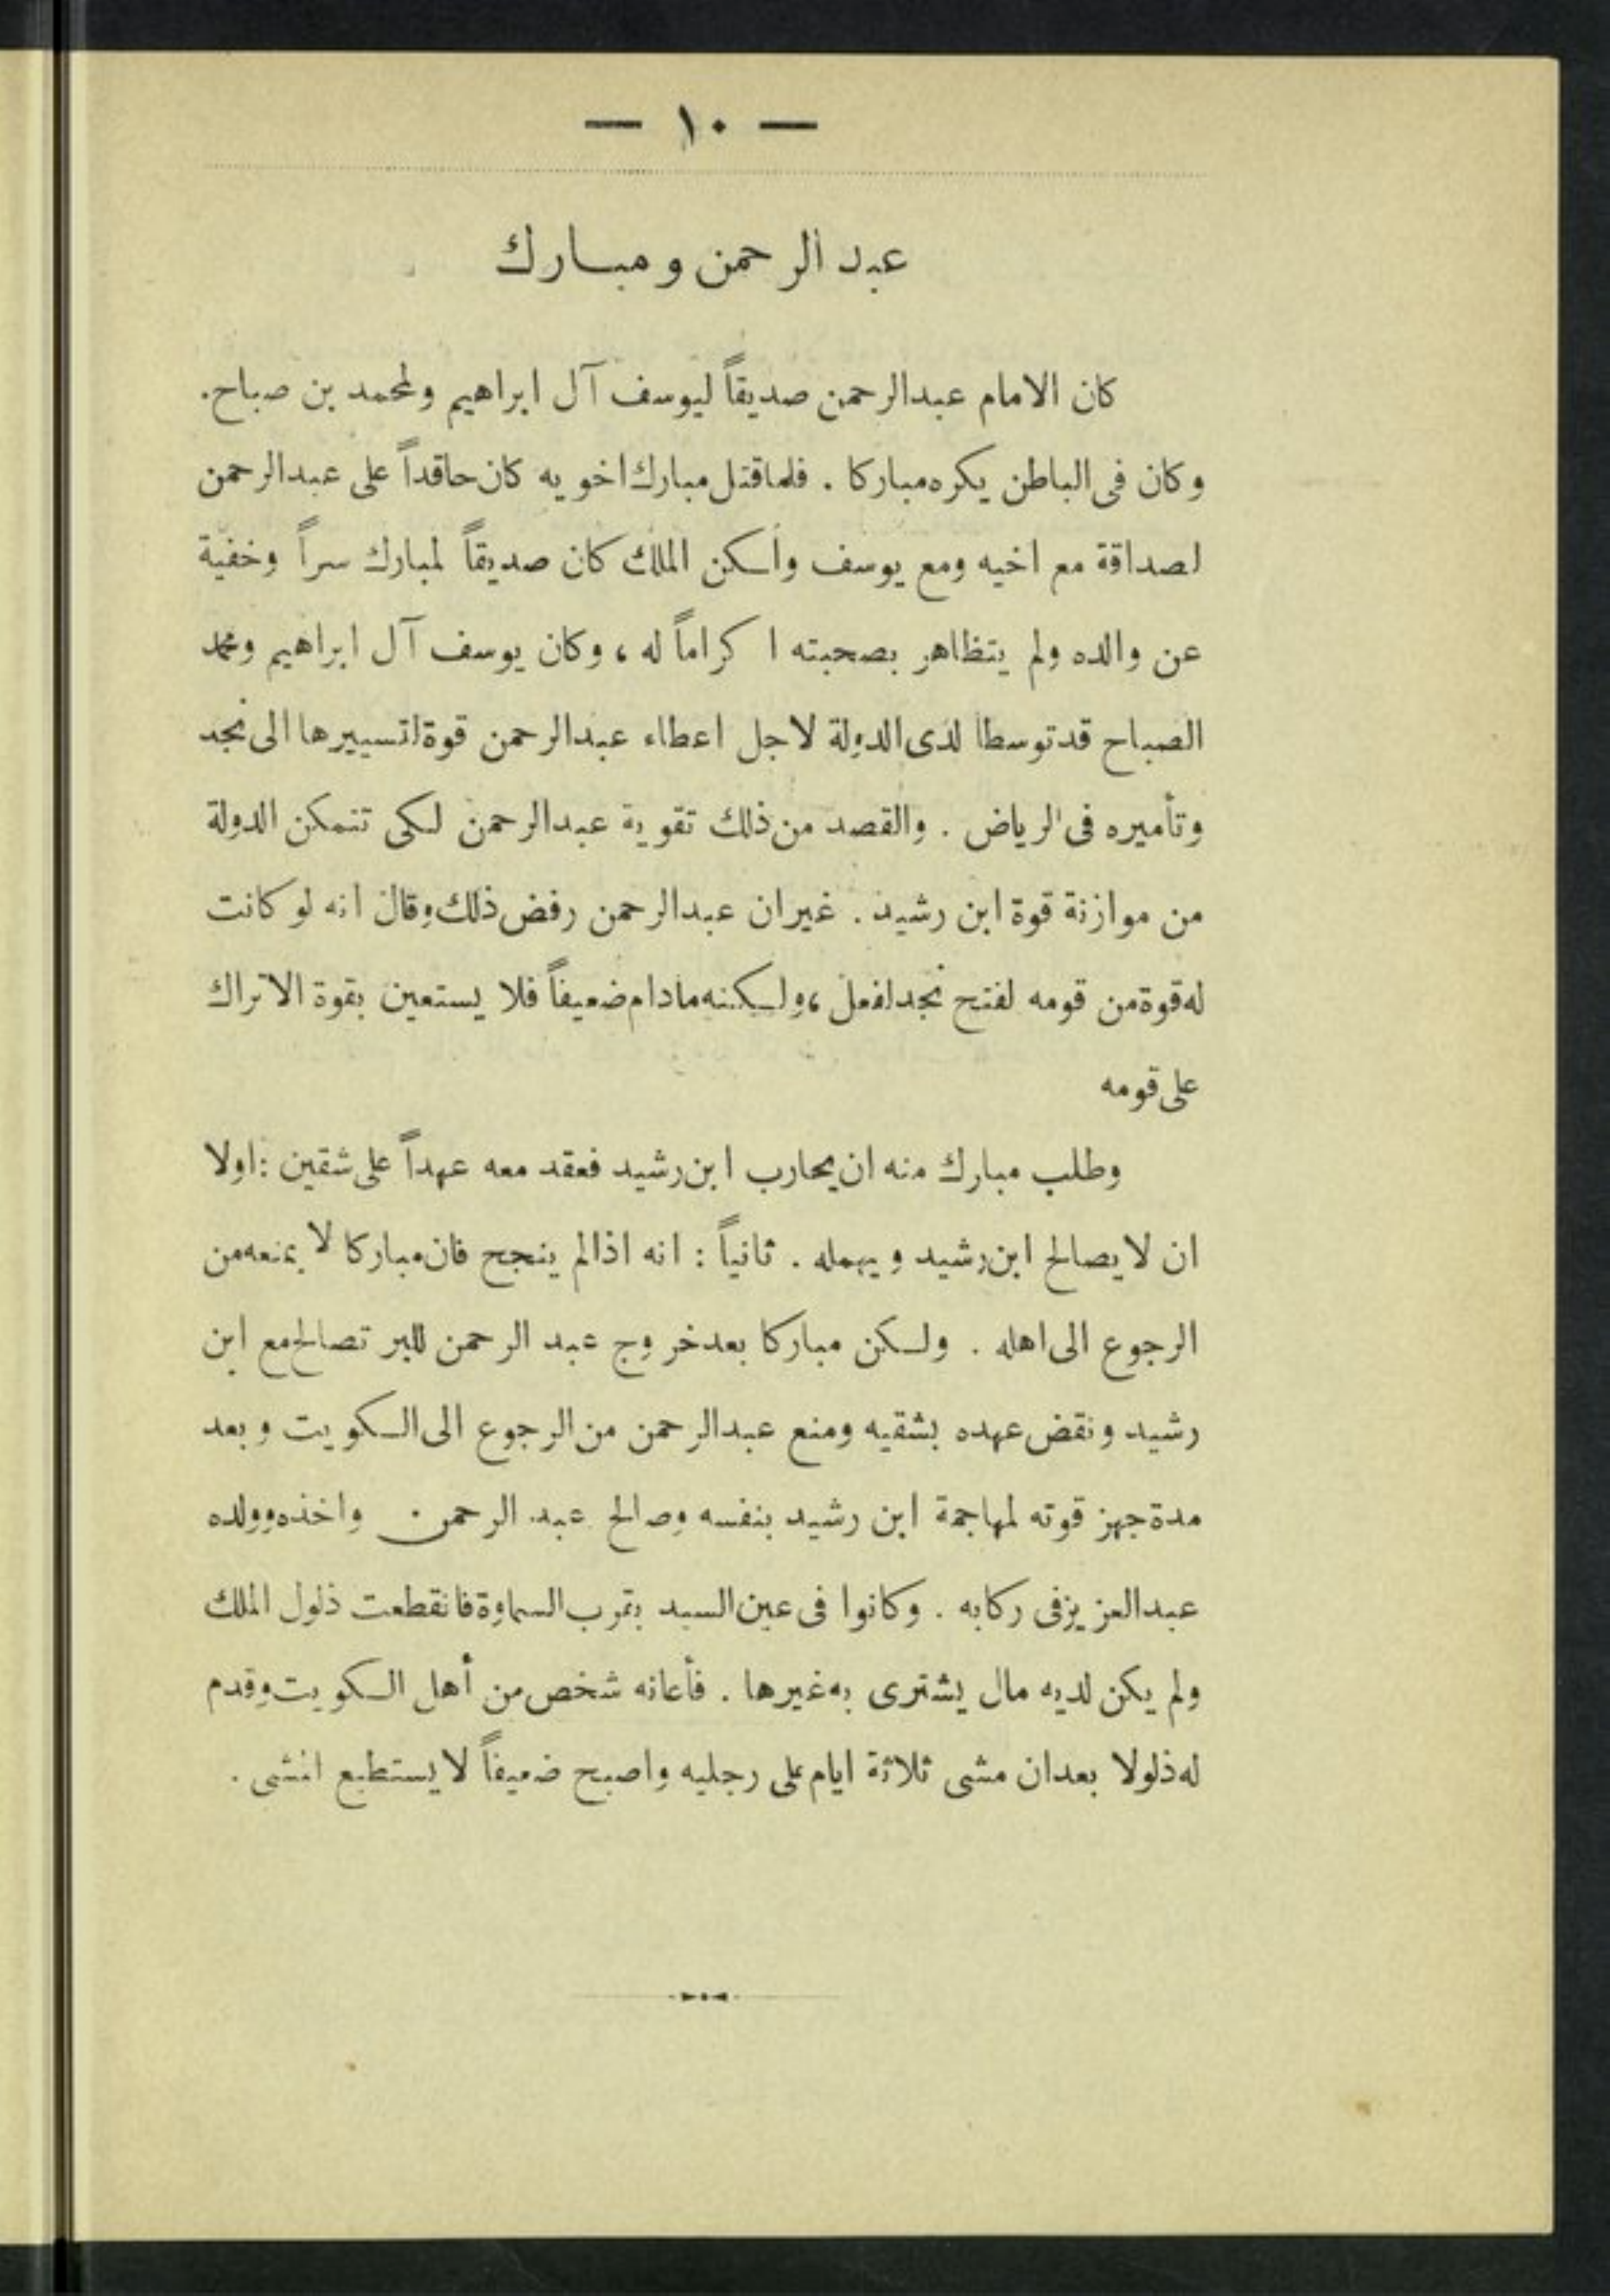 — ١٠ —
عبد الرحمن ومبارك
كان الامام عبدالرحمن صديقاً ليوسف آل ابراهيم ولمحمد بن صباح.
وكان فى الباطن يكره مباركا . فلما قتل مبارك اخويه كان حاقداً على عبدالرحمن
لصداقة مع اخيه ومع يوسف ولكن الملك كان صديقاً لمبارك سراً وخفية
عن والده ولم يتظاهر بصحبته اكراماً له ، وكان يوسف آل ابراهيم ومحمد
الصباح قد توسطا لدى الدولة لاجل اعطاء عبدالرحمن قوة لتسييرها الى نجد
وتأميره فى الرياض . والقصد من ذلك تقوية عبدالرحمن لكى تتمكن الدولة
من موازنة قوة ابن رشيد . غير ان عبدالرحمن رفض ذلك وقال انه لو كانت
له قوة من قومه لفتح نجد لفعل ، ولكنه مادام ضعيفاً فلا يستعين بقوة الاتراك
على قومه
وطلب مبارك منه ان يحارب ابن رشيد فعقد معه عهداً على شقين : اولا
ان لا يصالح ابن رشيد ويهمله . ثانياً : انه اذا لم ينجح فان مباركا لا يمنعه من
الرجوع الى اهله . ولكن مباركا بعد خروج عبد الرحمن للبر تصالح مع ابن
رشيد ونقض عهده بشقيه ومنع عبدالرحمن من الرجوع الى الكويت وبعد
مدة جهز قوته لمهاجمة ابن رشيد بنفسه وصالح عبد الرحمن واخذه وولده
عبدالعزيز فى ركابه . وكانوا فى عين السيد بقرب السماوة فانقطعت ذلول الملك
ولم يكن لديه مال يشترى به غيرها . فأعانه شخص من أهل الكويت وقدم
له ذلولا بعد ان مشى ثلاثة ايام على رجليه واصبح ضعيفاً لا يستطيع المشى .